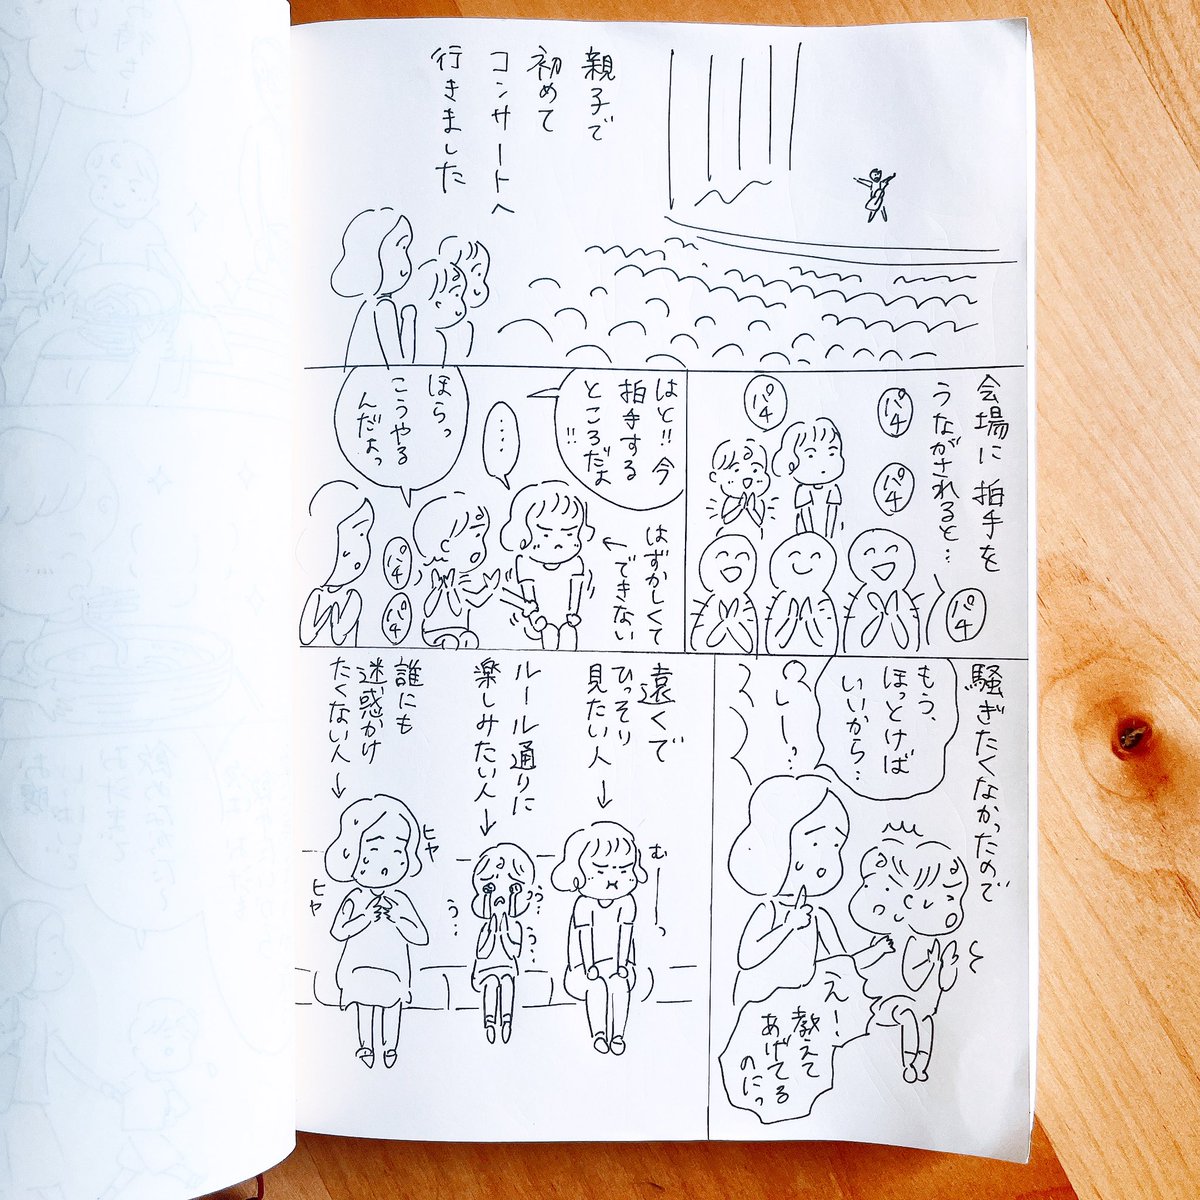 親子で
初めて
コンサートへ
行きました
会場に拍手を
うながされると…
パチ
パチ
パチ
パチ
はと!!今
拍手する
ところだよ
!!
はずかしくて
できない
‥‥
ほらっ
こうやる
んだよっ
パチ
パチ
騒ぎたくなかったので
もう、
ほっとけば
いいから…
しーっ
えー!
教えて
あげてる
のにっ
遠くで
ひっそり
見たい人
むーっ
ルール通りに
楽しみたい人
うっ…
う…
う…
誰にも
迷惑かけ
たくない人
ヒヤ
ヒヤ